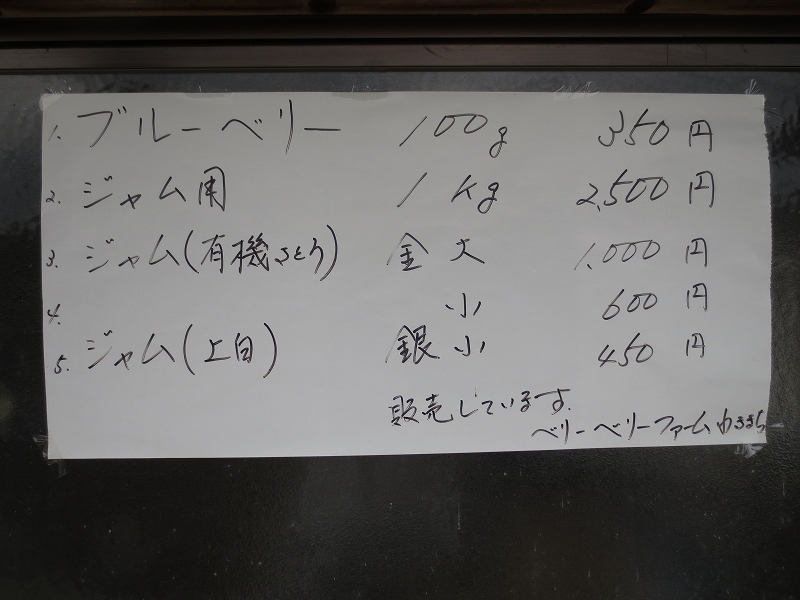 1. ブルーベリー 100g 350円
2. ジャム用 1kg 2,500円
3. ジャム(有機さとう) 金 大 1,000円
4. 小 600円
5. ジャム(上白) 銀 小 450円
販売しています.
ベリーベリーファーム